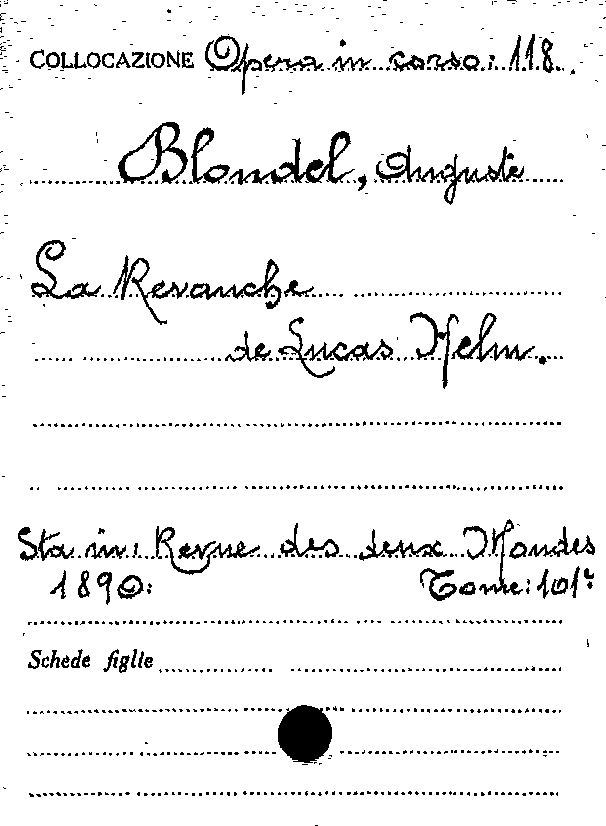 COLLOCAZIONE Opera in corso: 118.
Blondel, Auguste
La Revanche
de Lucas Helm.
Sta in: Revue des deux Mondes
1890: Tome: 101º
Schede figlie